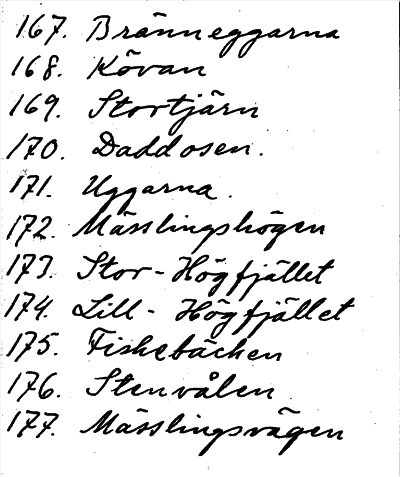 167. Bränneggarna
168. Kövan
169. Stortjärn
170. Daddosen.
171. Uggarna.
172. Mässlingshögen
173. Stor-Högfjället
174. Lill-Högfjället
175. Fiskebäcken
176. Stenvålen
177. Mässlingsvägen